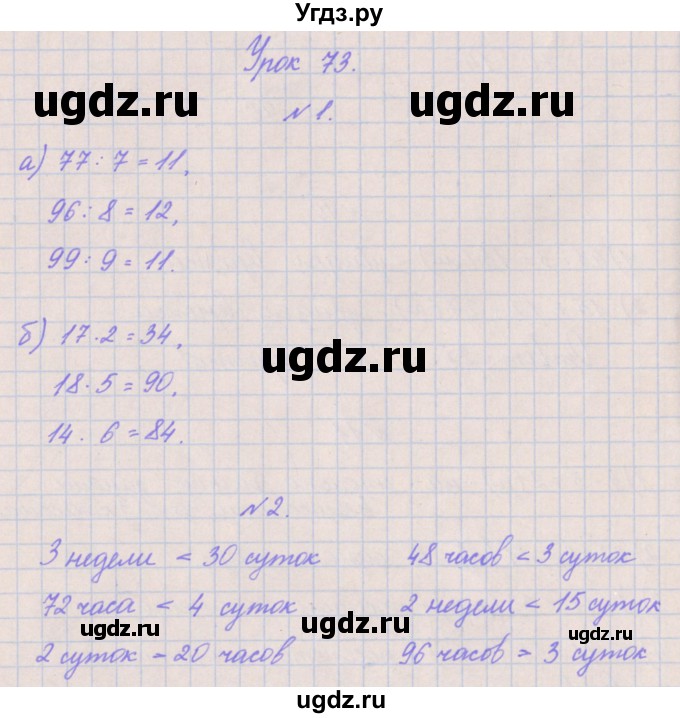 Угдз.ру
Урок 73.
ugdz.ru ugdz.ru
№ 1.
а) 77 : 7 = 11,
96 : 8 = 12,
99 : 9 = 11.
б) 17 · 2 = 34,
ugdz.ru
18 · 5 = 90,
14 · 6 = 84.
№ 2.
3 недели < 30 суток 48 часов < 3 суток
72 часа < 4 суток 2 недели < 15 суток
ugdz.ru ugdz.ru ugdz.ru
2 суток > 20 часов 96 часов > 3 суток
ugdz.ru